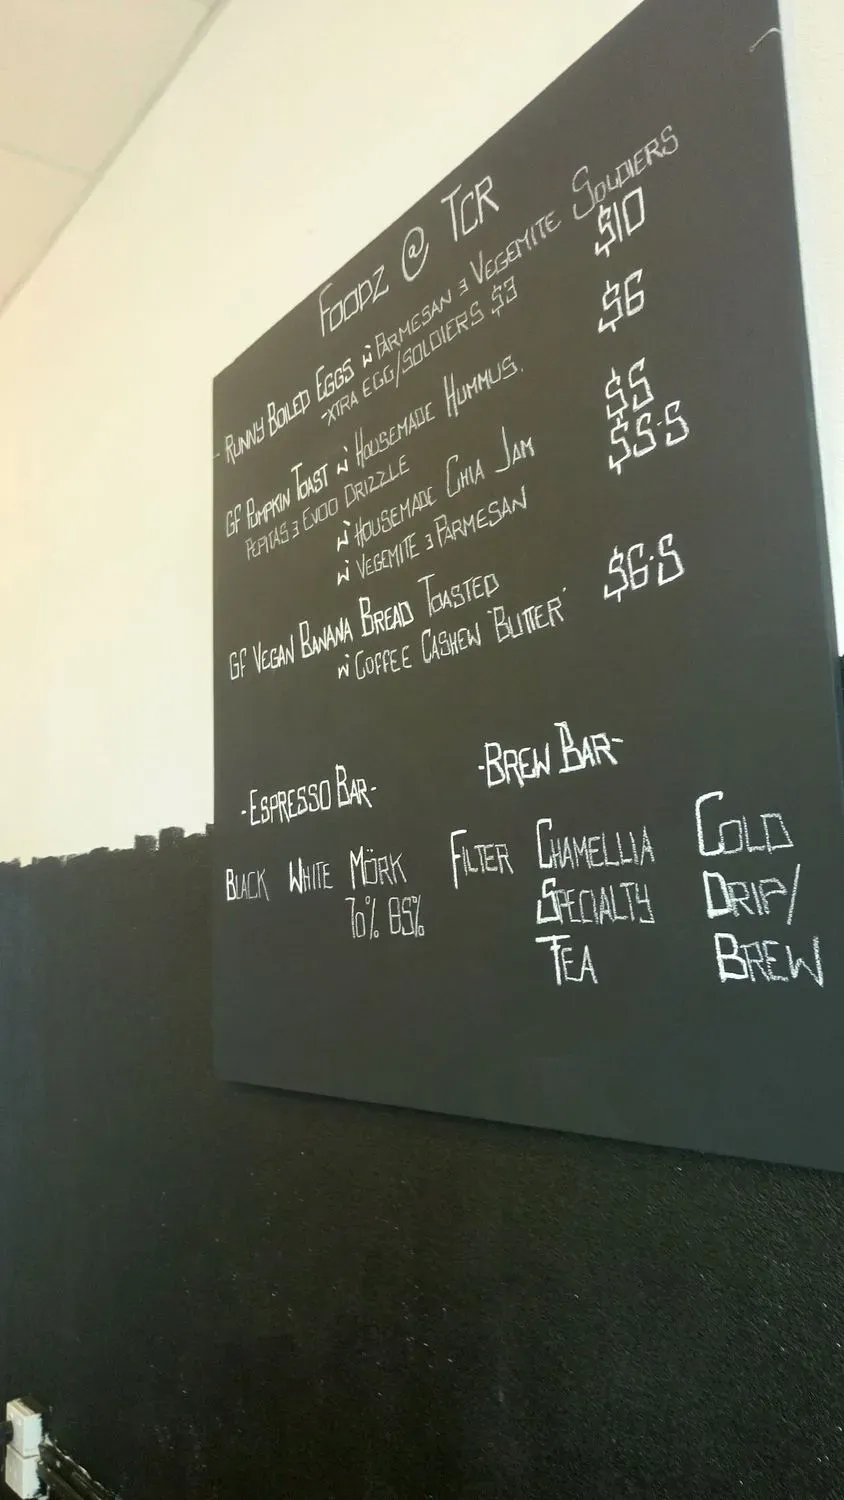 FOODZ @ TCR
- RUNNY BOILED EGGS W PARMESAN & VEGEMITE SOLDIERS $10
-XTRA EGG/SOLDIERS $3
GF PUMPKIN TOAST W HOUSEMADE HUMMUS, $6
PEPITAS & EVOO DRIZZLE
W HOUSEMADE CHIA JAM $5
W VEGEMITE & PARMESAN $5.5
GF VEGAN BANANA BREAD TOASTED $6.5
W COFFEE CASHEW 'BUTTER'
-ESPRESSO BAR-
BLACK WHITE MÖRK
70% 85%
-BREW BAR-
FILTER CHAMELLIA COLD
SPECIALTY DRIP/
TEA BREW